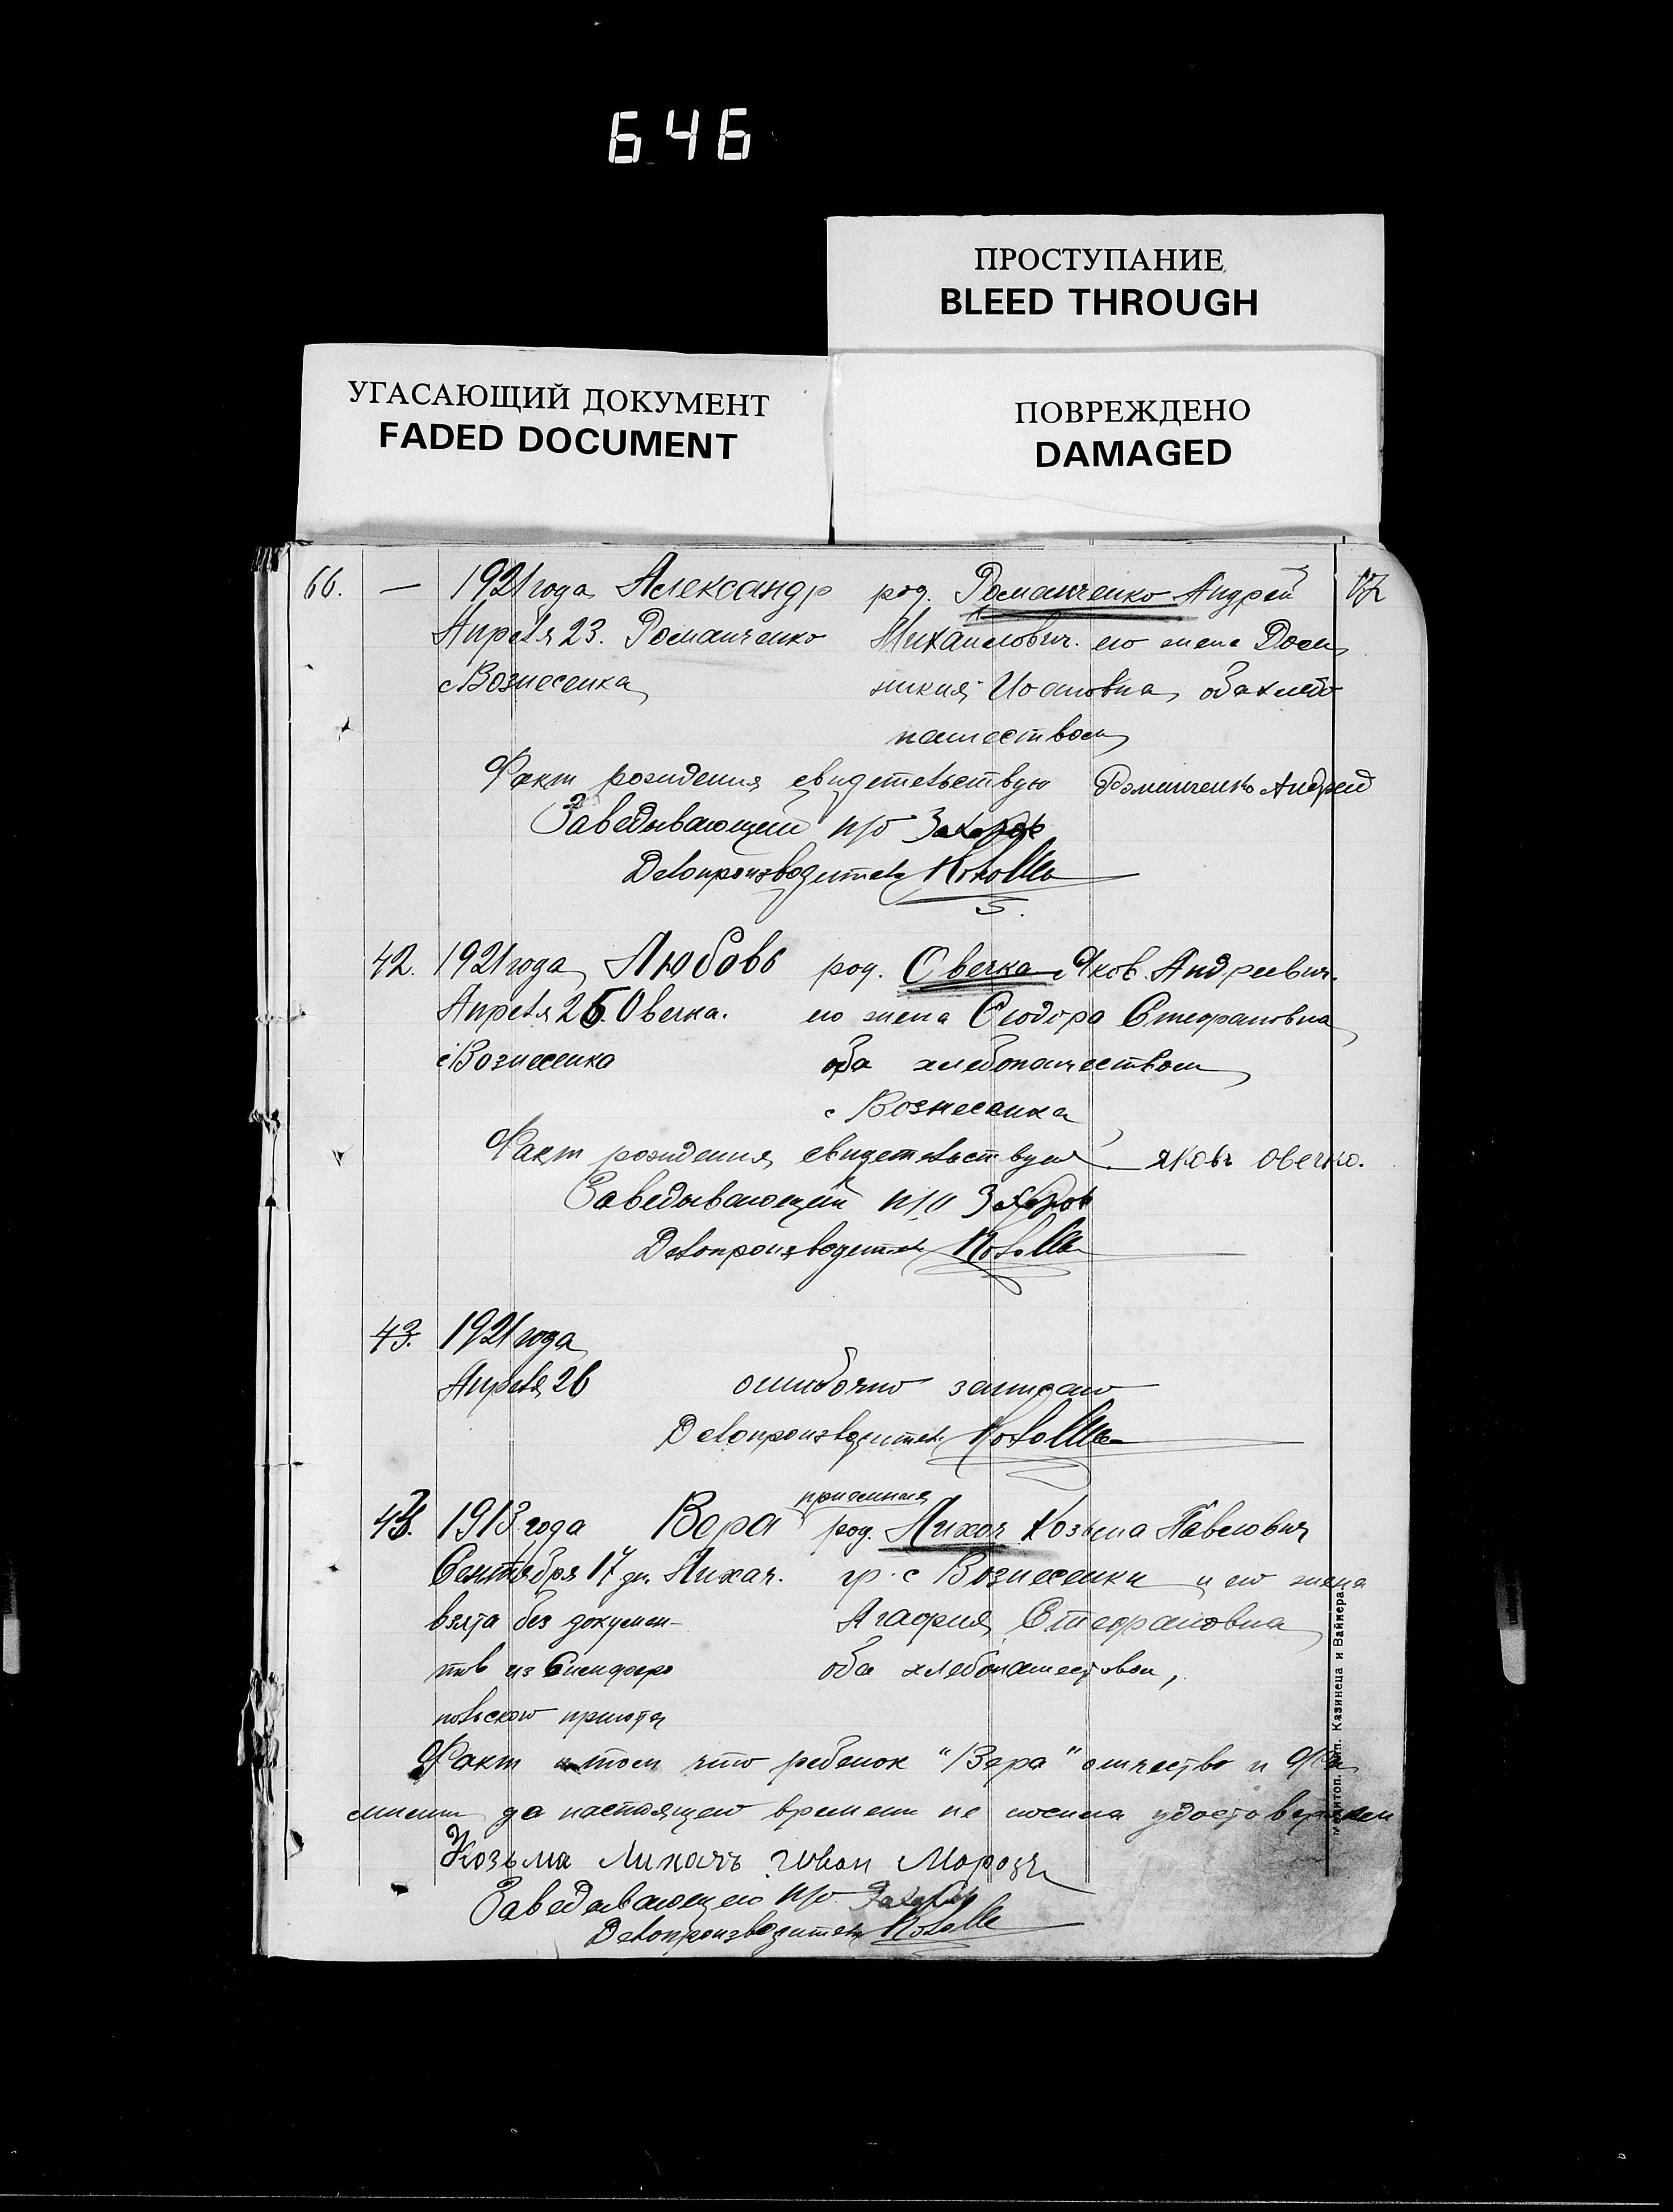 646
ПРОСТУПАНИЕ
BLEED THROUGH
УГАСАЮЩИЙ ДОКУМЕНТ
FADED DOCUMENT
ПОВРЕЖДЕНО
DAMAGED
66. — 1921 года Александр род. Романченко Андрей
Апреля 23. Романченко Михаилович. его жена Доми
с Вознесенка никия Иоановна, оба хлебо
пашеством
Факт рождения свидетельствую Романченко Андрей
Заведывающий п/о Захаров
Делопроизводитель
42. 1921 года Любовь род. Овечка Яков Андреевич.
Апреля 25. Овечка. его жена Сидора Стефановна
с Вознесенка оба хлебопашеством
с Вознесенка
Факт рождения свидетельствую Яковъ Овечко.
Заведывающий п/о Захаров
Делопроизводитель
43. 1921 года
Апреля 26 ошибочно записано
Делопроизводитель
приемныя
43. 1913 года Вера род. Лихач Козьма Павлович
Сентября 17 дн. Лихач. гр. с Вознесенки и его жена
взята без докумен- Агафия Стефановна
тов из Симферо оба хлебопашеством,
польского приюта
Факт в том что ребенок "Вера" отчество и фа
милии до настоящего времени не носила удостоверяем
Козьма Лихачъ Иван Морозъ
Заведывающего п/о
Делопроизводитель
Мелитоп. Тип. Казинеца и Вайнера